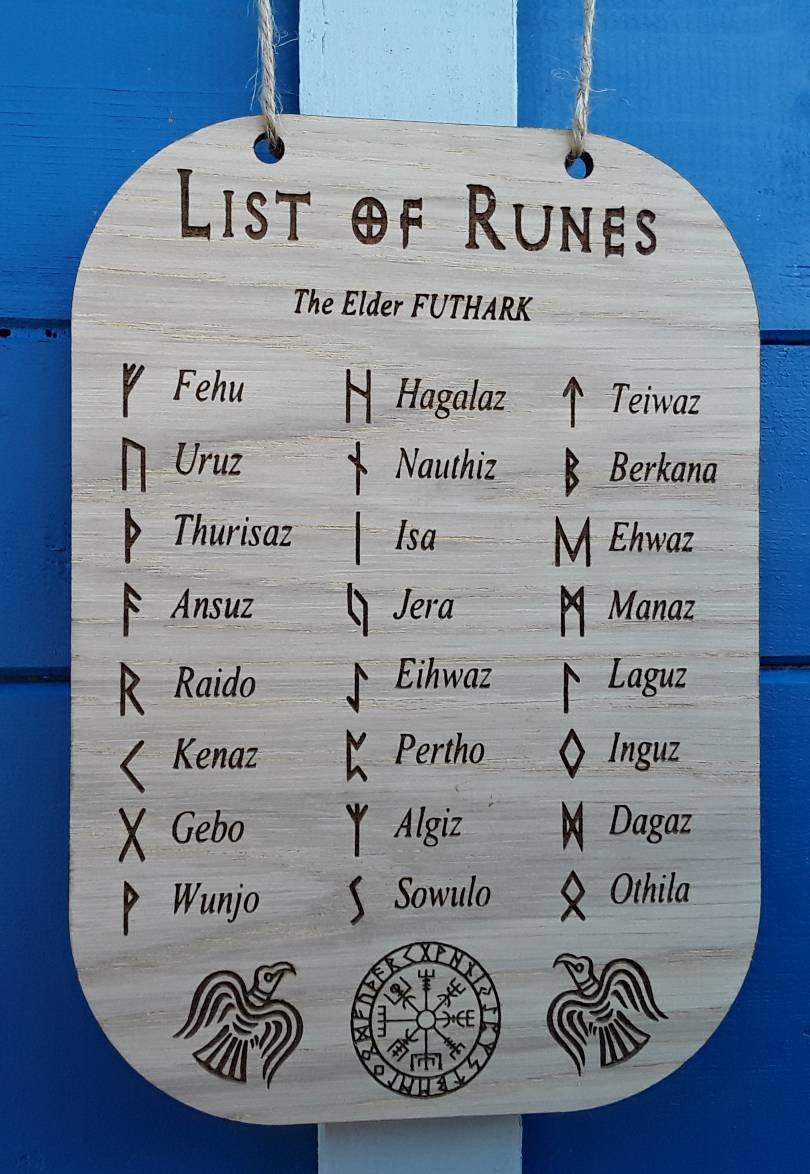 List of Runes
The Elder FUTHARK
ᚠ Fehu
ᚢ Uruz
ᚦ Thurisaz
ᚨ Ansuz
ᚱ Raido
ᚲ Kenaz
ᚷ Gebo
ᚹ Wunjo
ᚺ Hagalaz
ᚾ Nauthiz
ᛁ Isa
ᛃ Jera
ᛇ Eihwaz
ᛈ Pertho
ᛉ Algiz
ᛊ Sowulo
ᛏ Teiwaz
ᛒ Berkana
ᛖ Ehwaz
ᛗ Manaz
ᛚ Laguz
ᛜ Inguz
ᛞ Dagaz
ᛟ Othila